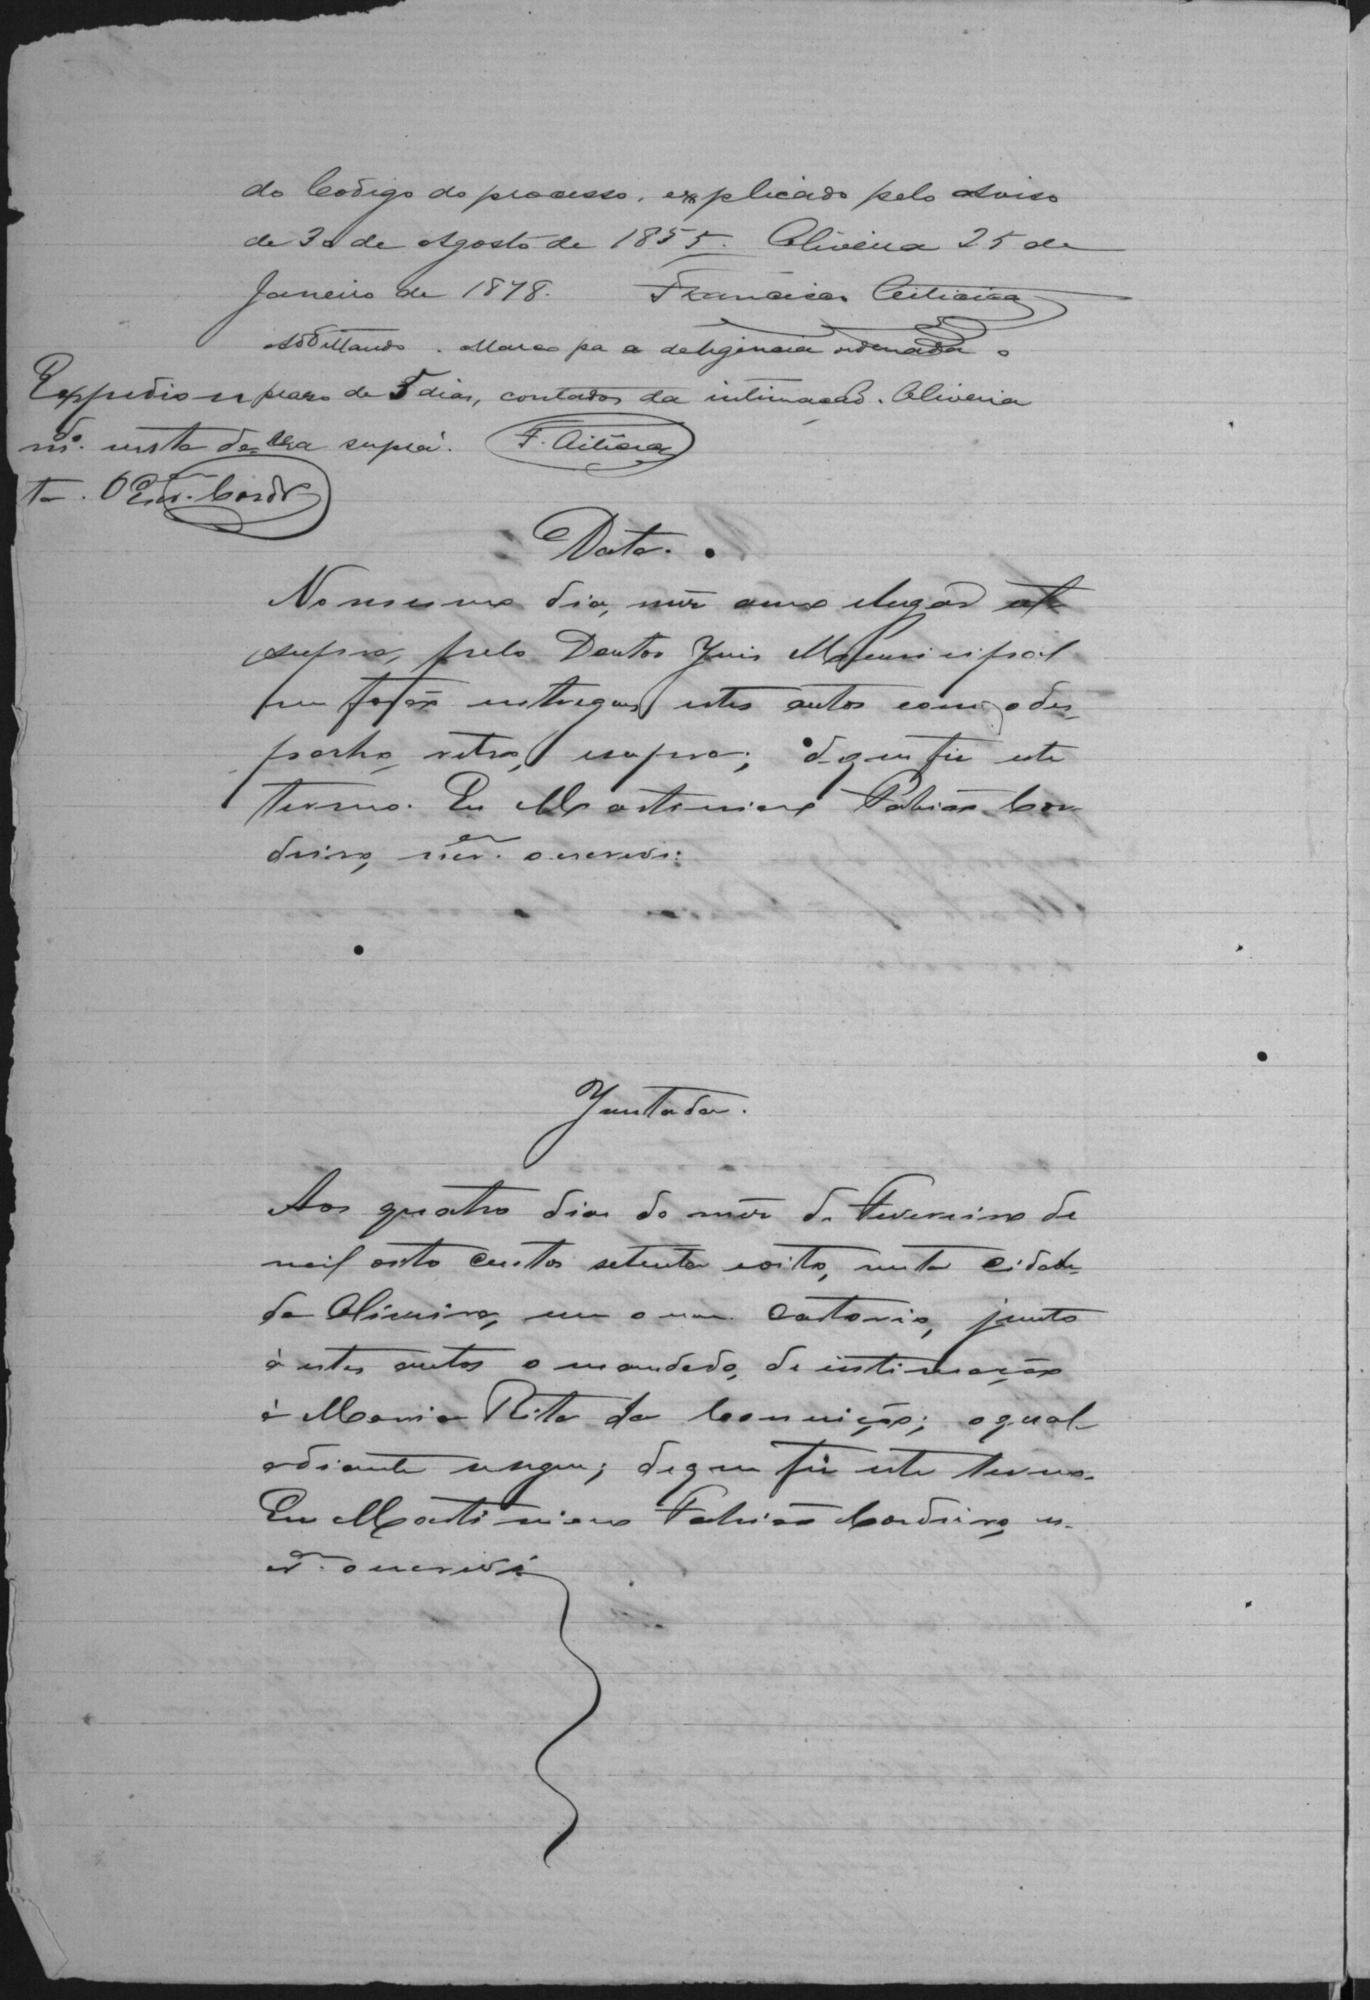 do Codigo do processo, explicado pelo Aviso
de 30 de Agosto de 1855. Oliveira 25 de
Janeiro de 1878. Francisco
Additando. Marco pa a deligencia ordenada o
praso de 5 dias, contados da intimação. Oliveira
era supra. F.
Expedio-se
m.do nesta da-
ta. O Esc.am Cordr.o
Data.
No mesmo dia, mez anno e lugar
supra, pelo Doutor Juis Municipal
me forão entregues estes autos com o des-
pacho retro, e supra; de que fiz este
termo. Eu Martiniano Fabião Cor-
deiro, escr.am o escrevi.
Juntada.
Aos quatro dias do mez de Fevereiro de
mil oito centos setenta e oito, nesta cidade
da Oliveira, em o meu Cartorio, junto
à estes autos o mandado, de intimação
à Maria Rita da Conceição; o qual
adiante segue; de que fiz este termo.
Eu Martiniano Fabião Cordeiro, es-
cr.am o escrevi